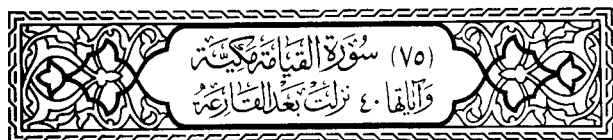 (٧٥) سُورَة القِيامَة مكيّة
وَآياتها ٤٠ نزلت بَعد القارعَة